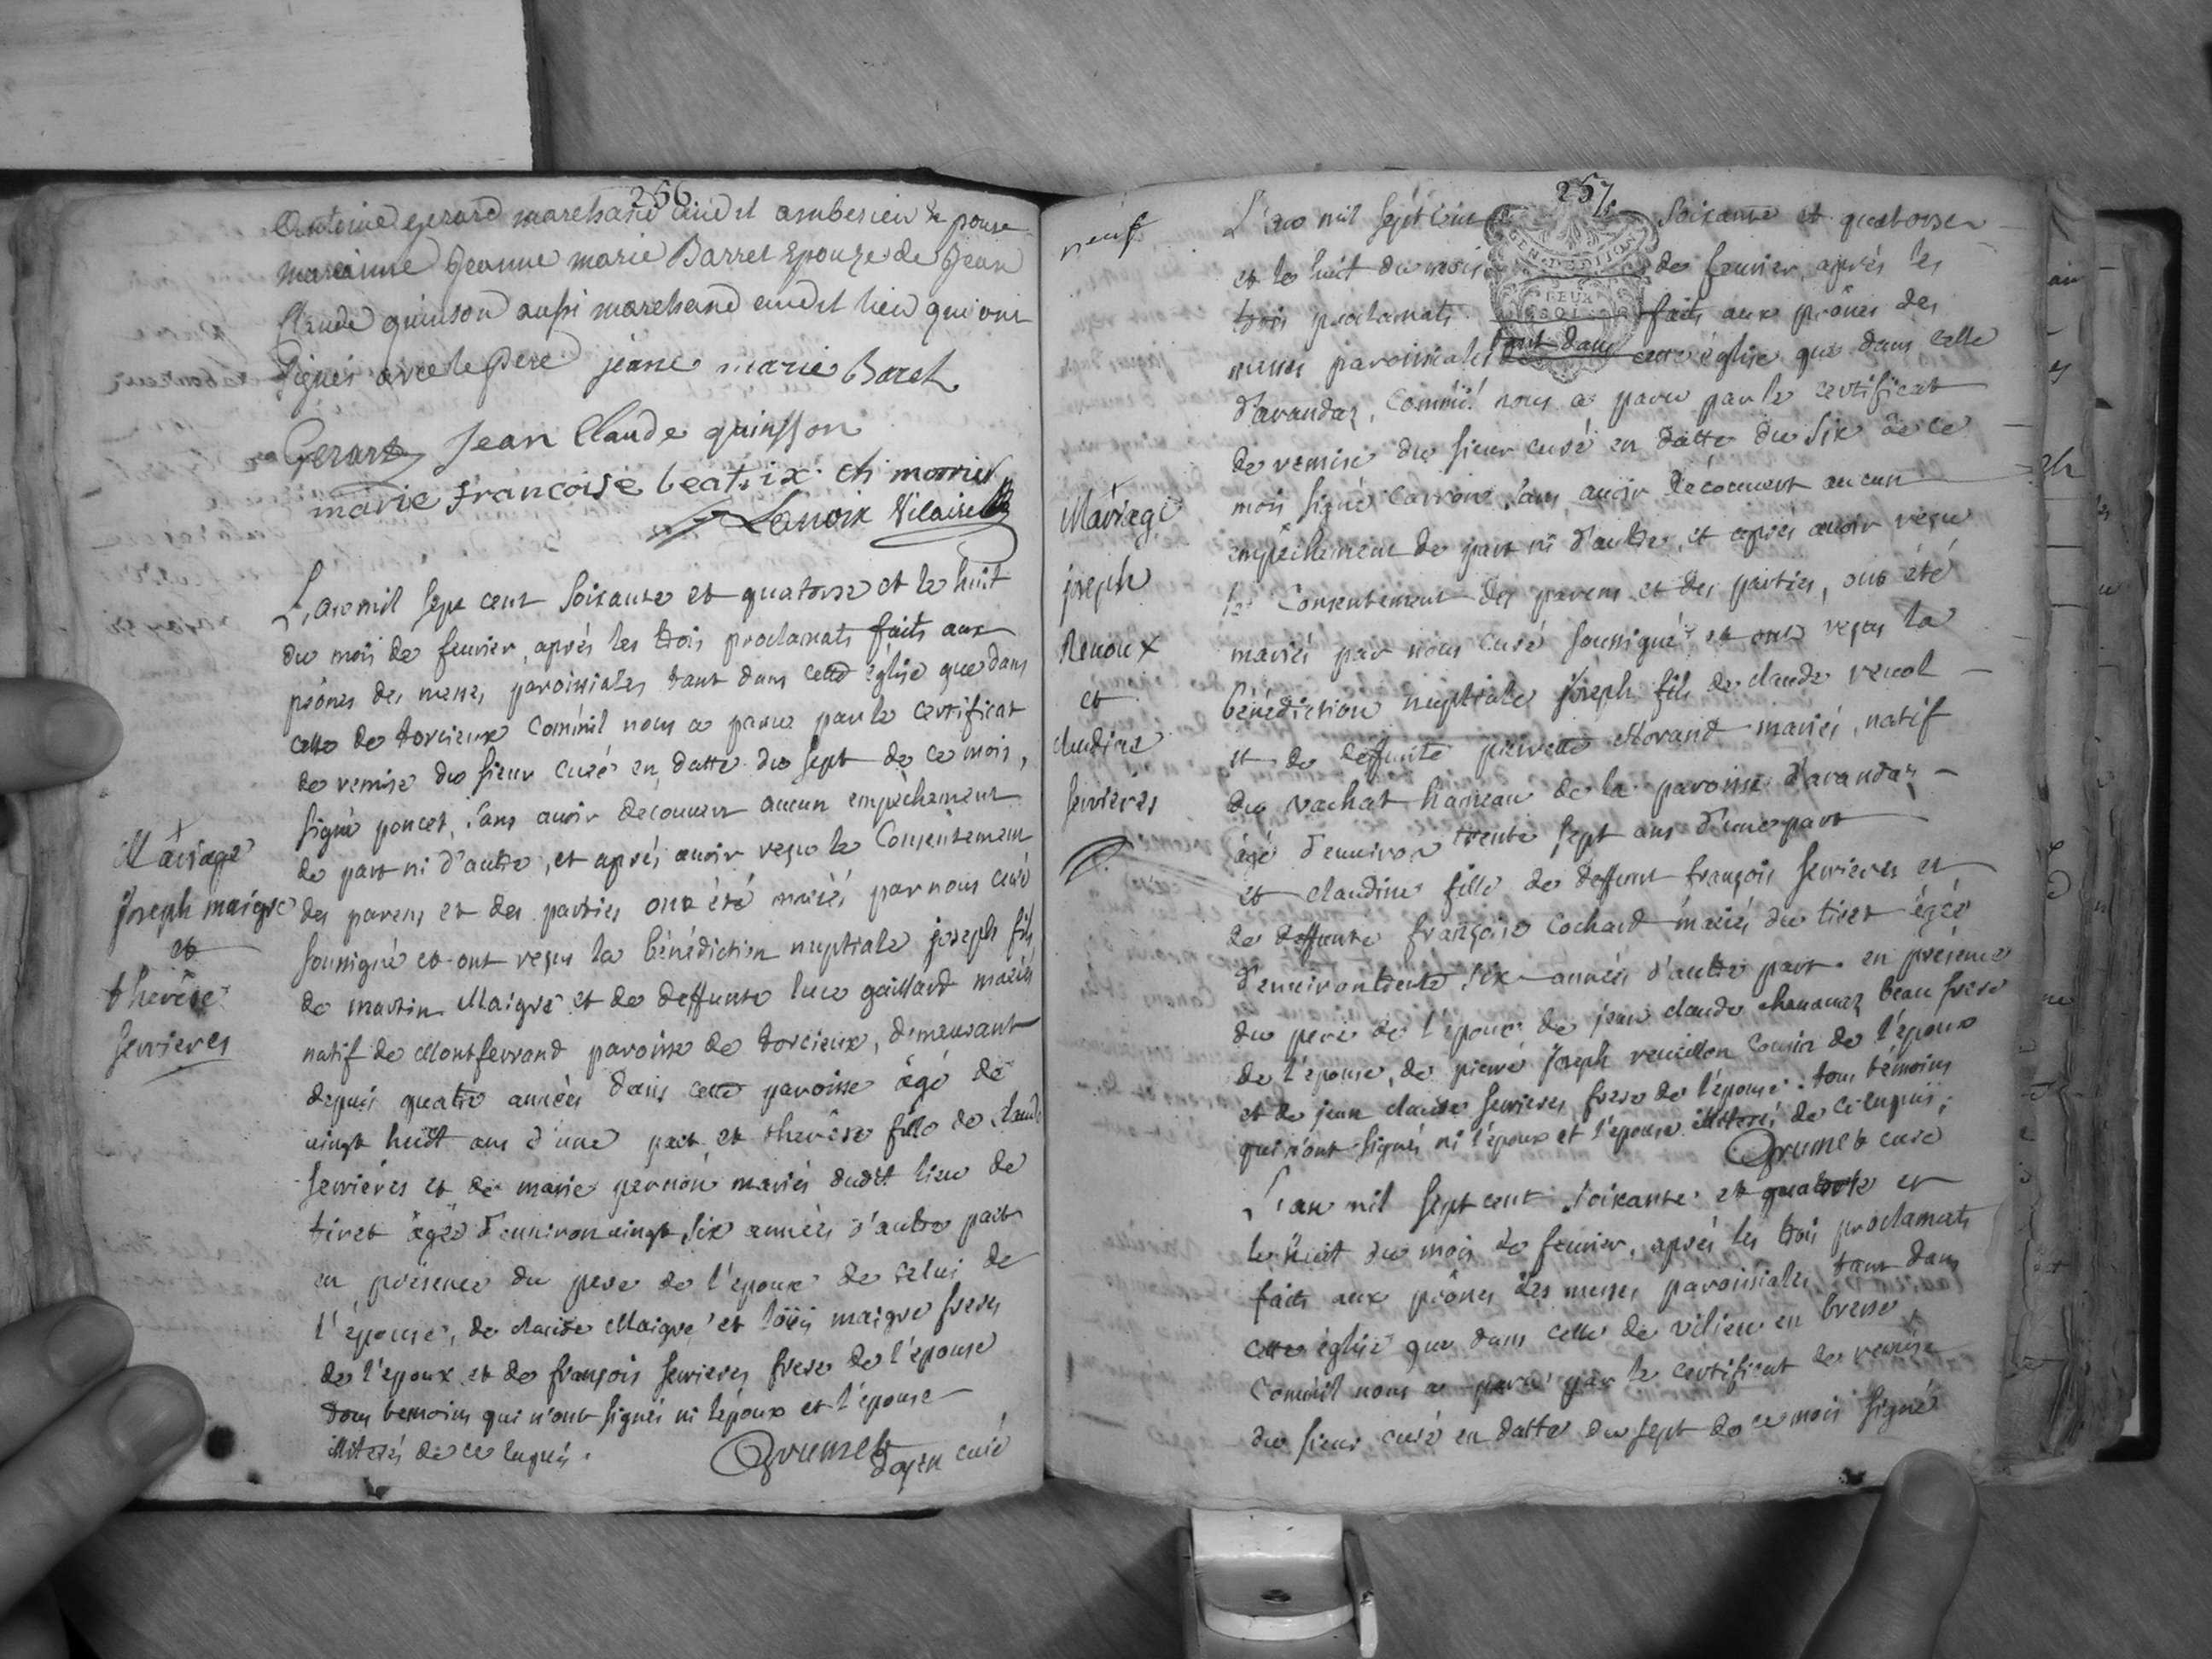 256
Antoine gerard marchand audit amberieu et epouse
marianne Jeanne marie Barret Epouze de Jean
Claude quinson aussi marchand audit lieu qui ont
Signés avec le Pere jeane marie Baret
Gerard Jean Claude quinsson
marie francoise beatrix
Lanoix Vilaine
L'an mil sept cent soixante et quatorze et le huit
du mois de feuvrier, aprés les trois proclamats faits aux
prônes des messes paroissiales tant dans cette église que dans
celle de torcieux comm'il nous a parue par le certificat
de remise du sieur curé en datte du sept de ce mois,
signé poncet, sans avoir decouvert aucun empéchement
de part ni d'autre, et aprés avoir reçu le Consentement
des parens et des parties ont été mariés par nous curé
soussigné et ont reçus la bénédiction nuptiale joseph fils
de martin Maigre et de deffunte luce gaillard mariés
natif de Montferrand paroisse de torcieux, demeurant
depuis quatre années dans cette paroisse âgé de
vingt huit ans d'une part et thérése fille de claude
servieres et de marie pernon mariés dudit lieu de
tiret âgée d'environ vingt six années d'autre part
en présence du pere de l'époux de celui de
l'épouse, de claude Maigre et loüis maigre freres
de l'époux et de françois servieres frere de l'épouse
tous temoins qui n'ont signés ni l'époux et l'épouse
illiterés de ce enquis.
Grumet doyen curé
Mariage
Joseph maigre
et
thérèse
servieres
257
neuf
L'an mil sept cent soixante et quatorze
et le huit du mois de feuvrier, aprés les
trois proclamats faits aux prônes des
messes paroissiales tant dans cette église que dans celle
d'arandaz, comm'il nous a paru par le certificat
de remise du sieur curé en datte du six de ce
mois signé Carron, sans avoir découvert aucun
empéchement de part ni d'autre, et aprés avoir reçu
le Consentement des parens et des parties, ont été
mariés par nous curé soussigné et ont reçus la
bénédiction nuptiale joseph fils de claude
et de deffunte pierrette Morand mariés, natif
du vachat hameau de la paroisse d'arandaz
âgé d'environ trente sept ans d'une part
et claudine fille de deffunt françois servieres et
de deffunte françoise Cochard mariés du tiret âgée
d'environ trente six années d'autre part. en présence
du pere de l'époux de jean claude beau frere
de l'épouse, de pierre Joseph cousin de l'époux
et de jean claude servieres frere de l'épouse. tous témoins
qui n'ont signés ni l'époux et l'épouse illiterés de ce enquis;
Grumet curé
L'an mil sept cent soixante et quatorze et
le huit du mois de feuvrier, aprés les trois proclamats
faits aux prônes des messes paroissiales tant dans
cette église que dans celle de vilieu en bresse,
comm'il nous a paru par le certificat de remise
du sieur curé en datte du sept de ce mois signé
Mariage
joseph
Renoux
et
claudine
servieres